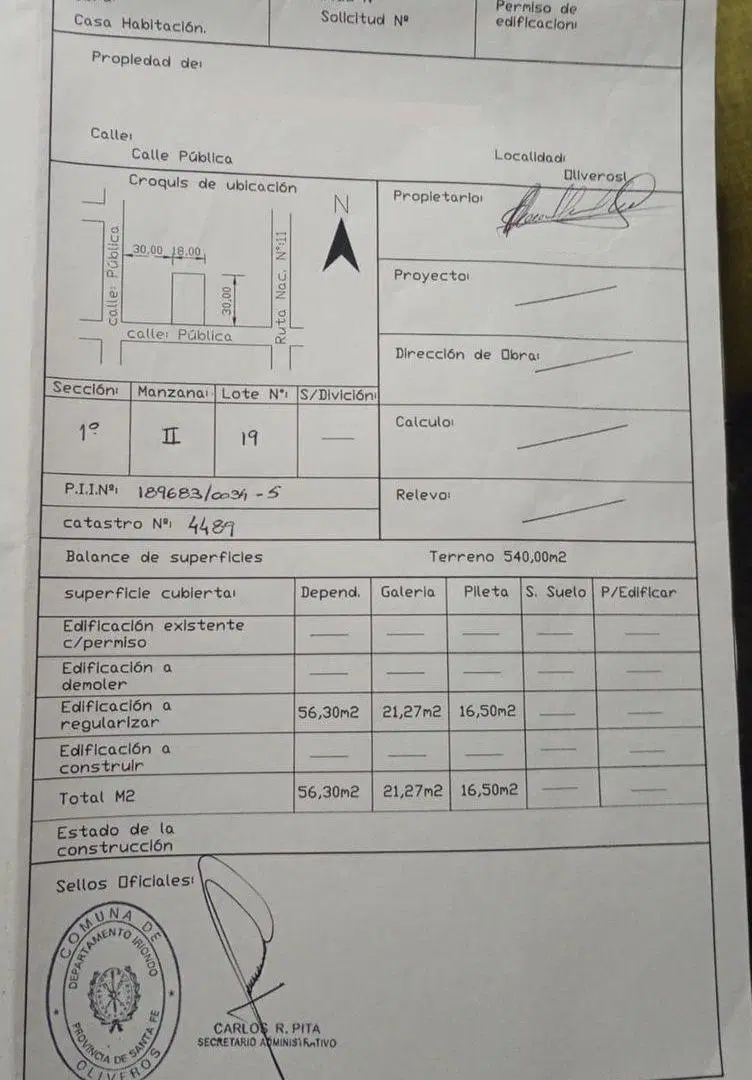 Casa Habitación.
Solicitud Nº
Permiso de
edificacion:
Propiedad de:
Calle:
Calle Pública
Localidad:
Oliveros
Croquis de ubicación
N
calle: Pública
30,00 18,00
30,00
Ruta Nac. Nº:11
calle: Pública
Propietario:
Proyecto:
Dirección de Obra:
Calculo:
Relevo:
Sección: Manzana: Lote Nº: S/División:
1º II 19 —
P.I.I.Nº: 189683/0034-5
catastro Nº: 4489
Balance de superficies Terreno 540,00m2
superficie cubierta: Depend. Galeria Pileta S. Suelo P/Edificar
Edificación existente
c/permiso — — — — —
Edificación a
demoler — — — — —
Edificación a
regularizar 56,30m2 21,27m2 16,50m2 — —
Edificación a
construir — — — — —
Total M2 56,30m2 21,27m2 16,50m2 — —
Estado de la
construcción
Sellos Oficiales:
COMUNA DE
DEPARTAMENTO IRIONDO
PROVINCIA DE SANTA FE
OLIVEROS
CARLOS R. PITA
SECRETARIO ADMINISTRATIVO